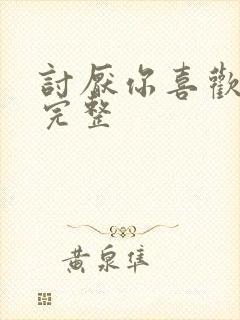 討厭你喜歡
完整
黄泉隼